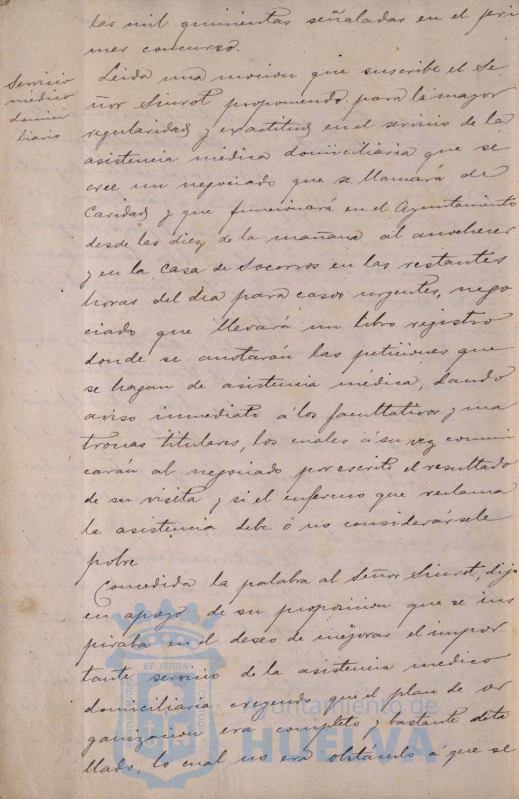 las mil quinientas señaladas en el pri
mer concurso.
Servicio
médico
domici
liario
Leida una mocion que suscribe el Se
ñor Siurot proponiendo para la mayor
regularidad y exactitud en el servicio de la
asistencia médica domiciliaria que se
cree un negociado que se llamará de
Caridad y que funcionará en el Ayuntamiento
desde las diez de la mañana al anochecer
y en la Casa de Socorros en las restantes
horas del dia para casos urgentes, nego
ciado que llevará un libro registro
donde se anotarán las peticiones que
se hagan de asistencia médica, dando
aviso inmediato á los facultativos y ma
tronas titulares, los cuales á su vez comuni
carán al negociado por escrito el resultado
de su visita y si el enfermo que reclama
la asistencia debe ó no considerársele
pobre
Concedida la palabra al Señor Siurot, dijo
en apoyo de su proposicion que se ins
piraba en el deseo de mejorar el impor
tante servicio de la asistencia medico
domiciliaria creyendo que el plan de or
ganizacion era completo y bastante deta
llado, lo cual no era obstáculo á que se
ET TERRÆ
Ayuntamiento de
HUELVA